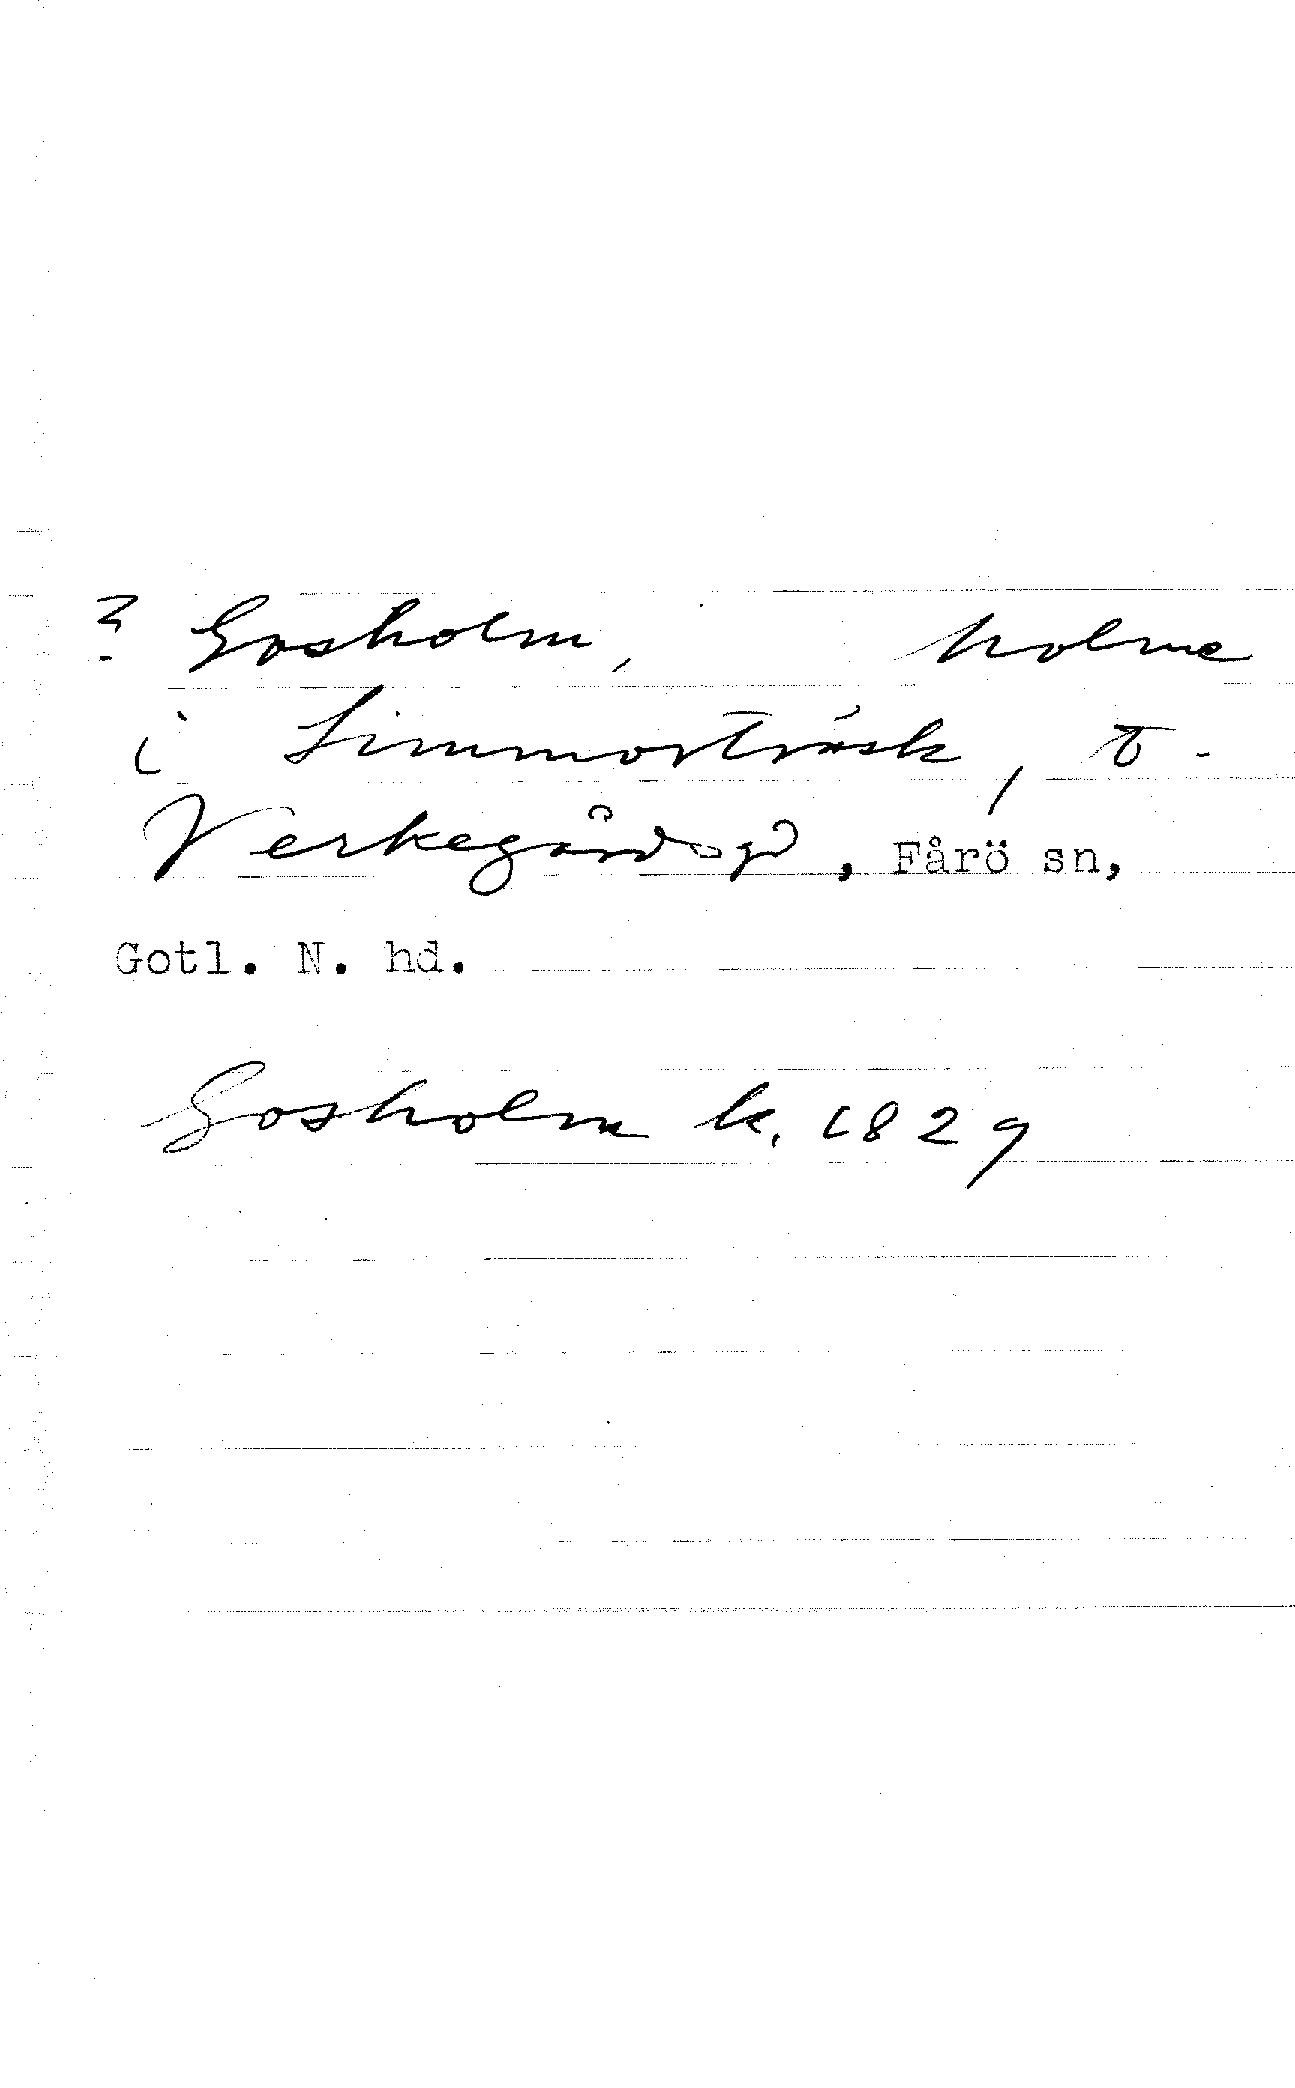 ? Gosholm, holme
i Limmorträsk, t.
Verkegårdsgd, Fårö sn,
Gotl. N. hd.
Gosholm k. 1829